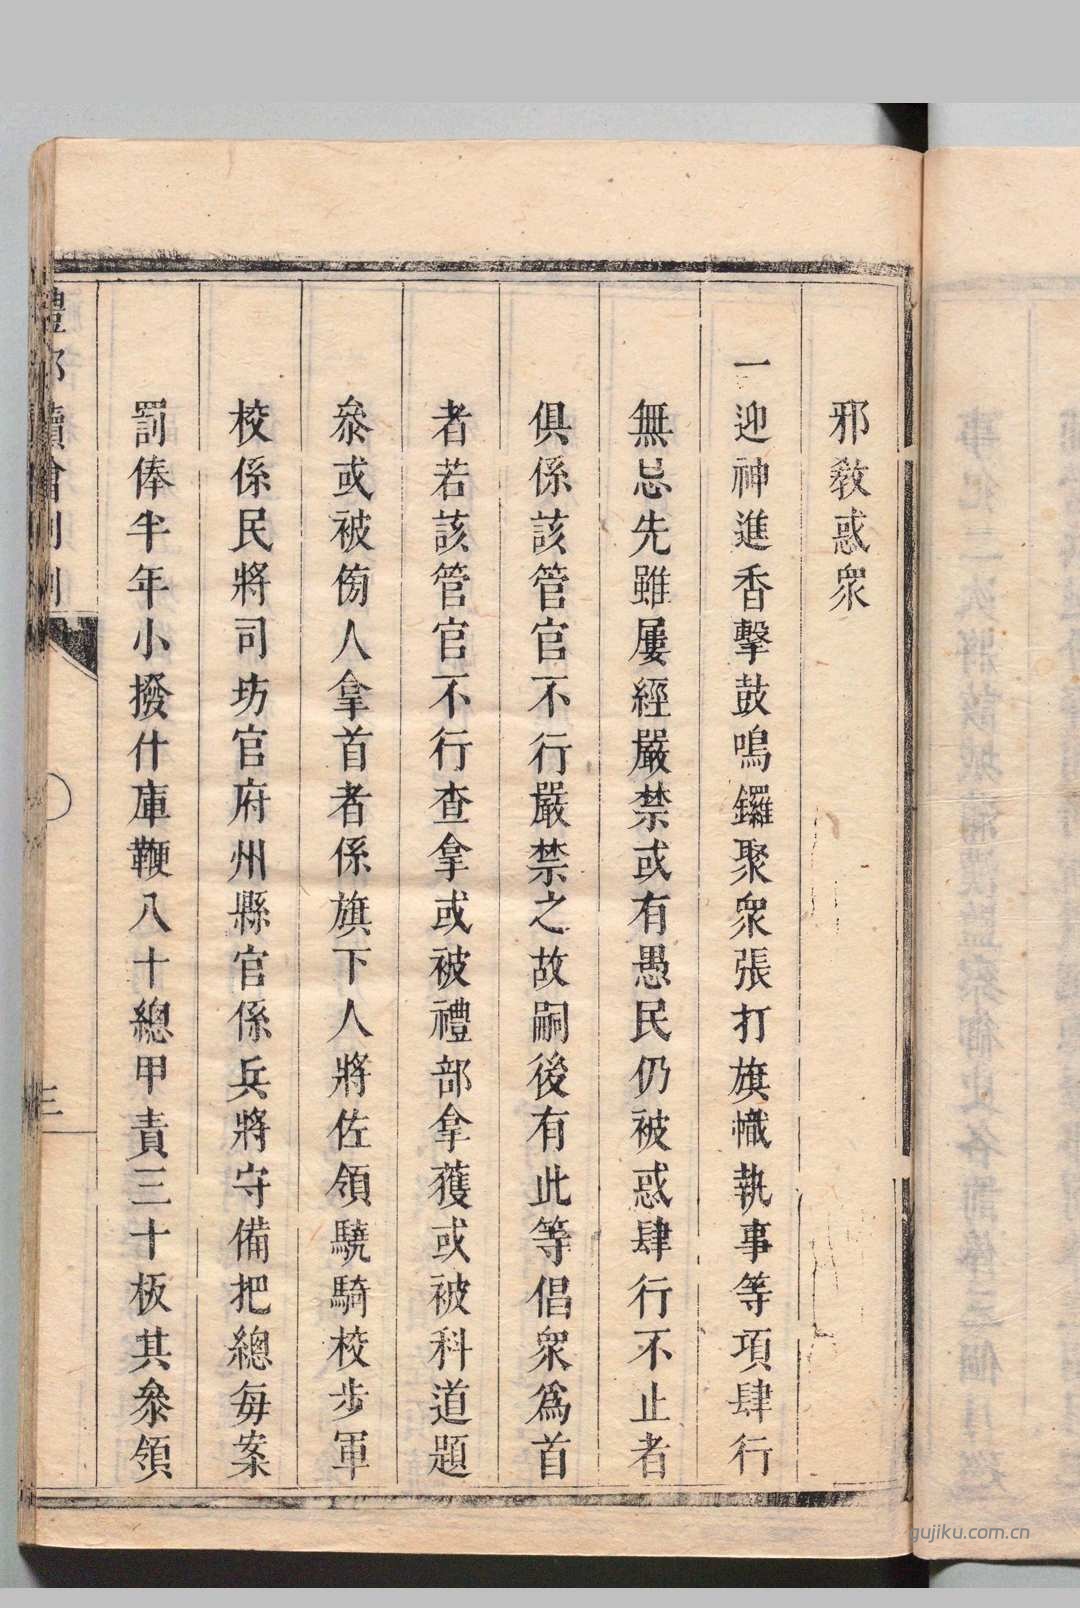 邪教惑衆
一迎神進香擊鼓鳴鑼聚衆張打旗幟執事等項肆行
無忌先雖屢經嚴禁或有愚民仍被惑肆行不止者
俱係該管官不行嚴禁之故嗣後有此等倡衆爲首
者若該管官不行查拿或被禮部拿獲或被科道題
叅或被傍人拿首者係旗下人將佐領驍騎校步軍
校係民將司坊官府州縣官係兵將守備把總每案
罰俸半年小撥什庫鞭八十總甲責三十板其叅領
三
gujiku.com.cn